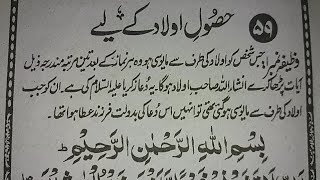 ۵۹ حصول اولاد کے لیے
وظیفہ نمبر۱: جس شخص کو اولاد کی طرف سے مایوسی ہو وہ ہر نماز کے بعد تین مرتبہ مندرجہ ذیل
آیات پڑھا کرے انشاء اللہ صاحب اولاد ہوگا۔ یہ دُعا زکریا علیہ السلام کی ہے۔ ان کو جب
اولاد کی طرف سے مایوسی ہوگئی تھی تو انہیں اس دُعا کی بدولت فرزند عطا ہوا تھا۔
بِسْمِ اللّٰهِ الرَّحْمٰنِ الرَّحِيْمِ